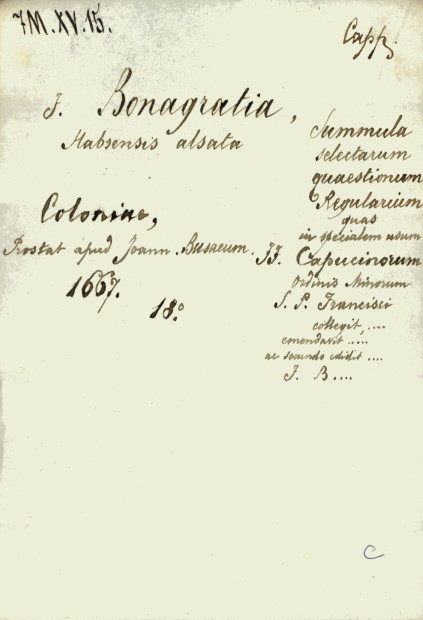 7M.XV.15.
Capp.
F. Bonagratia,
Habsensis alsata
Summula
selectarum
quaestionum
Regularium
quas
in specialem usum
FF. Capucinorum
Ordinis Minorum
S. P. Francisci
collegit, ....
emendavit .....
ac secundo edidit ....
F. B....
Coloniae,
Prostat apud Joann. Busaeum.
1667.
18.º
C